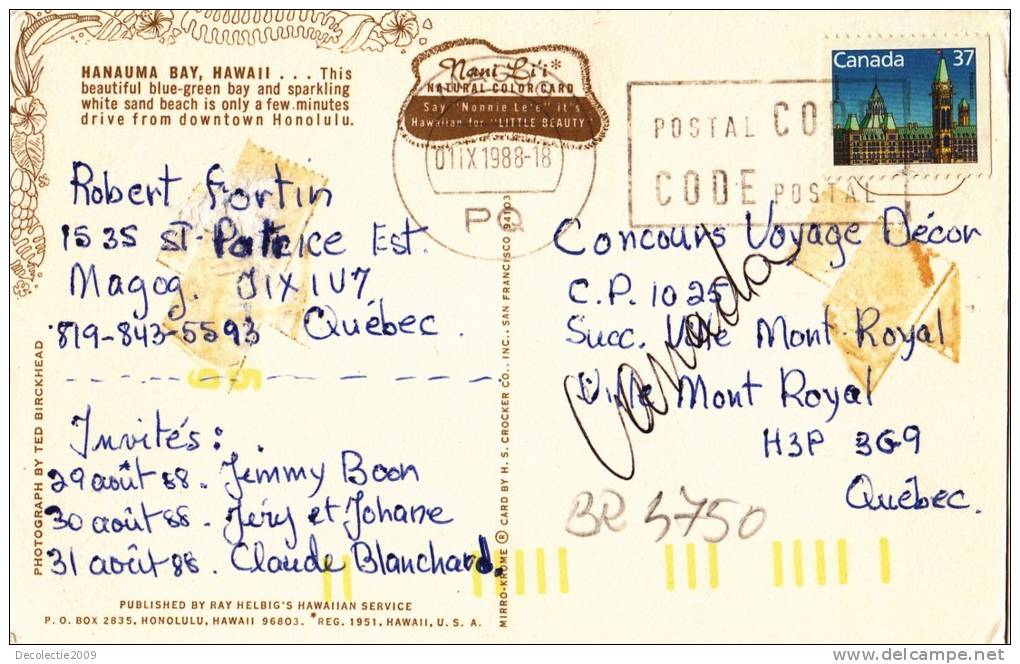 HANAUMA BAY, HAWAII . . . This
beautiful blue-green bay and sparkling
white sand beach is only a few minutes
drive from downtown Honolulu.
Nani Li'i*
NATURAL COLOR CARD
Say "Nonnie Le'e" it's
Hawaiian for "LITTLE BEAUTY"
01 IX 1988-18
PQ
POSTAL CODE
CODE POSTAL
Canada 37
Robert Fortin
1535 St-Patrice Est.
Magog. J1X 1V7
819-843-5593 Québec.
Invités:
29 août 88. Jimmy Boon
30 août 88. Jéry et Johane
31 août 88. Claude Blanchard.
Concours Voyage Décor
C.P. 1025
Succ. Ville Mont Royal
Ville Mont Royal
H3P 3G9
Québec.
Canada
BR 5750
PHOTOGRAPH BY TED BIRCKHEAD
MIRRO-KROME ® CARD BY H. S. CROCKER CO., INC., SAN FRANCISCO 94103
PUBLISHED BY RAY HELBIG'S HAWAIIAN SERVICE
P. O. BOX 2835, HONOLULU, HAWAII 96803. *REG. 1951, HAWAII, U. S. A.
Decolectie2009
www.delcampe.net